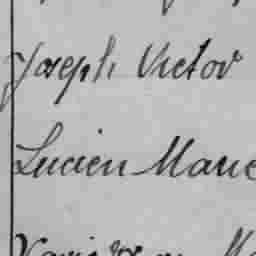 Joseph Victor
Lucien Marie